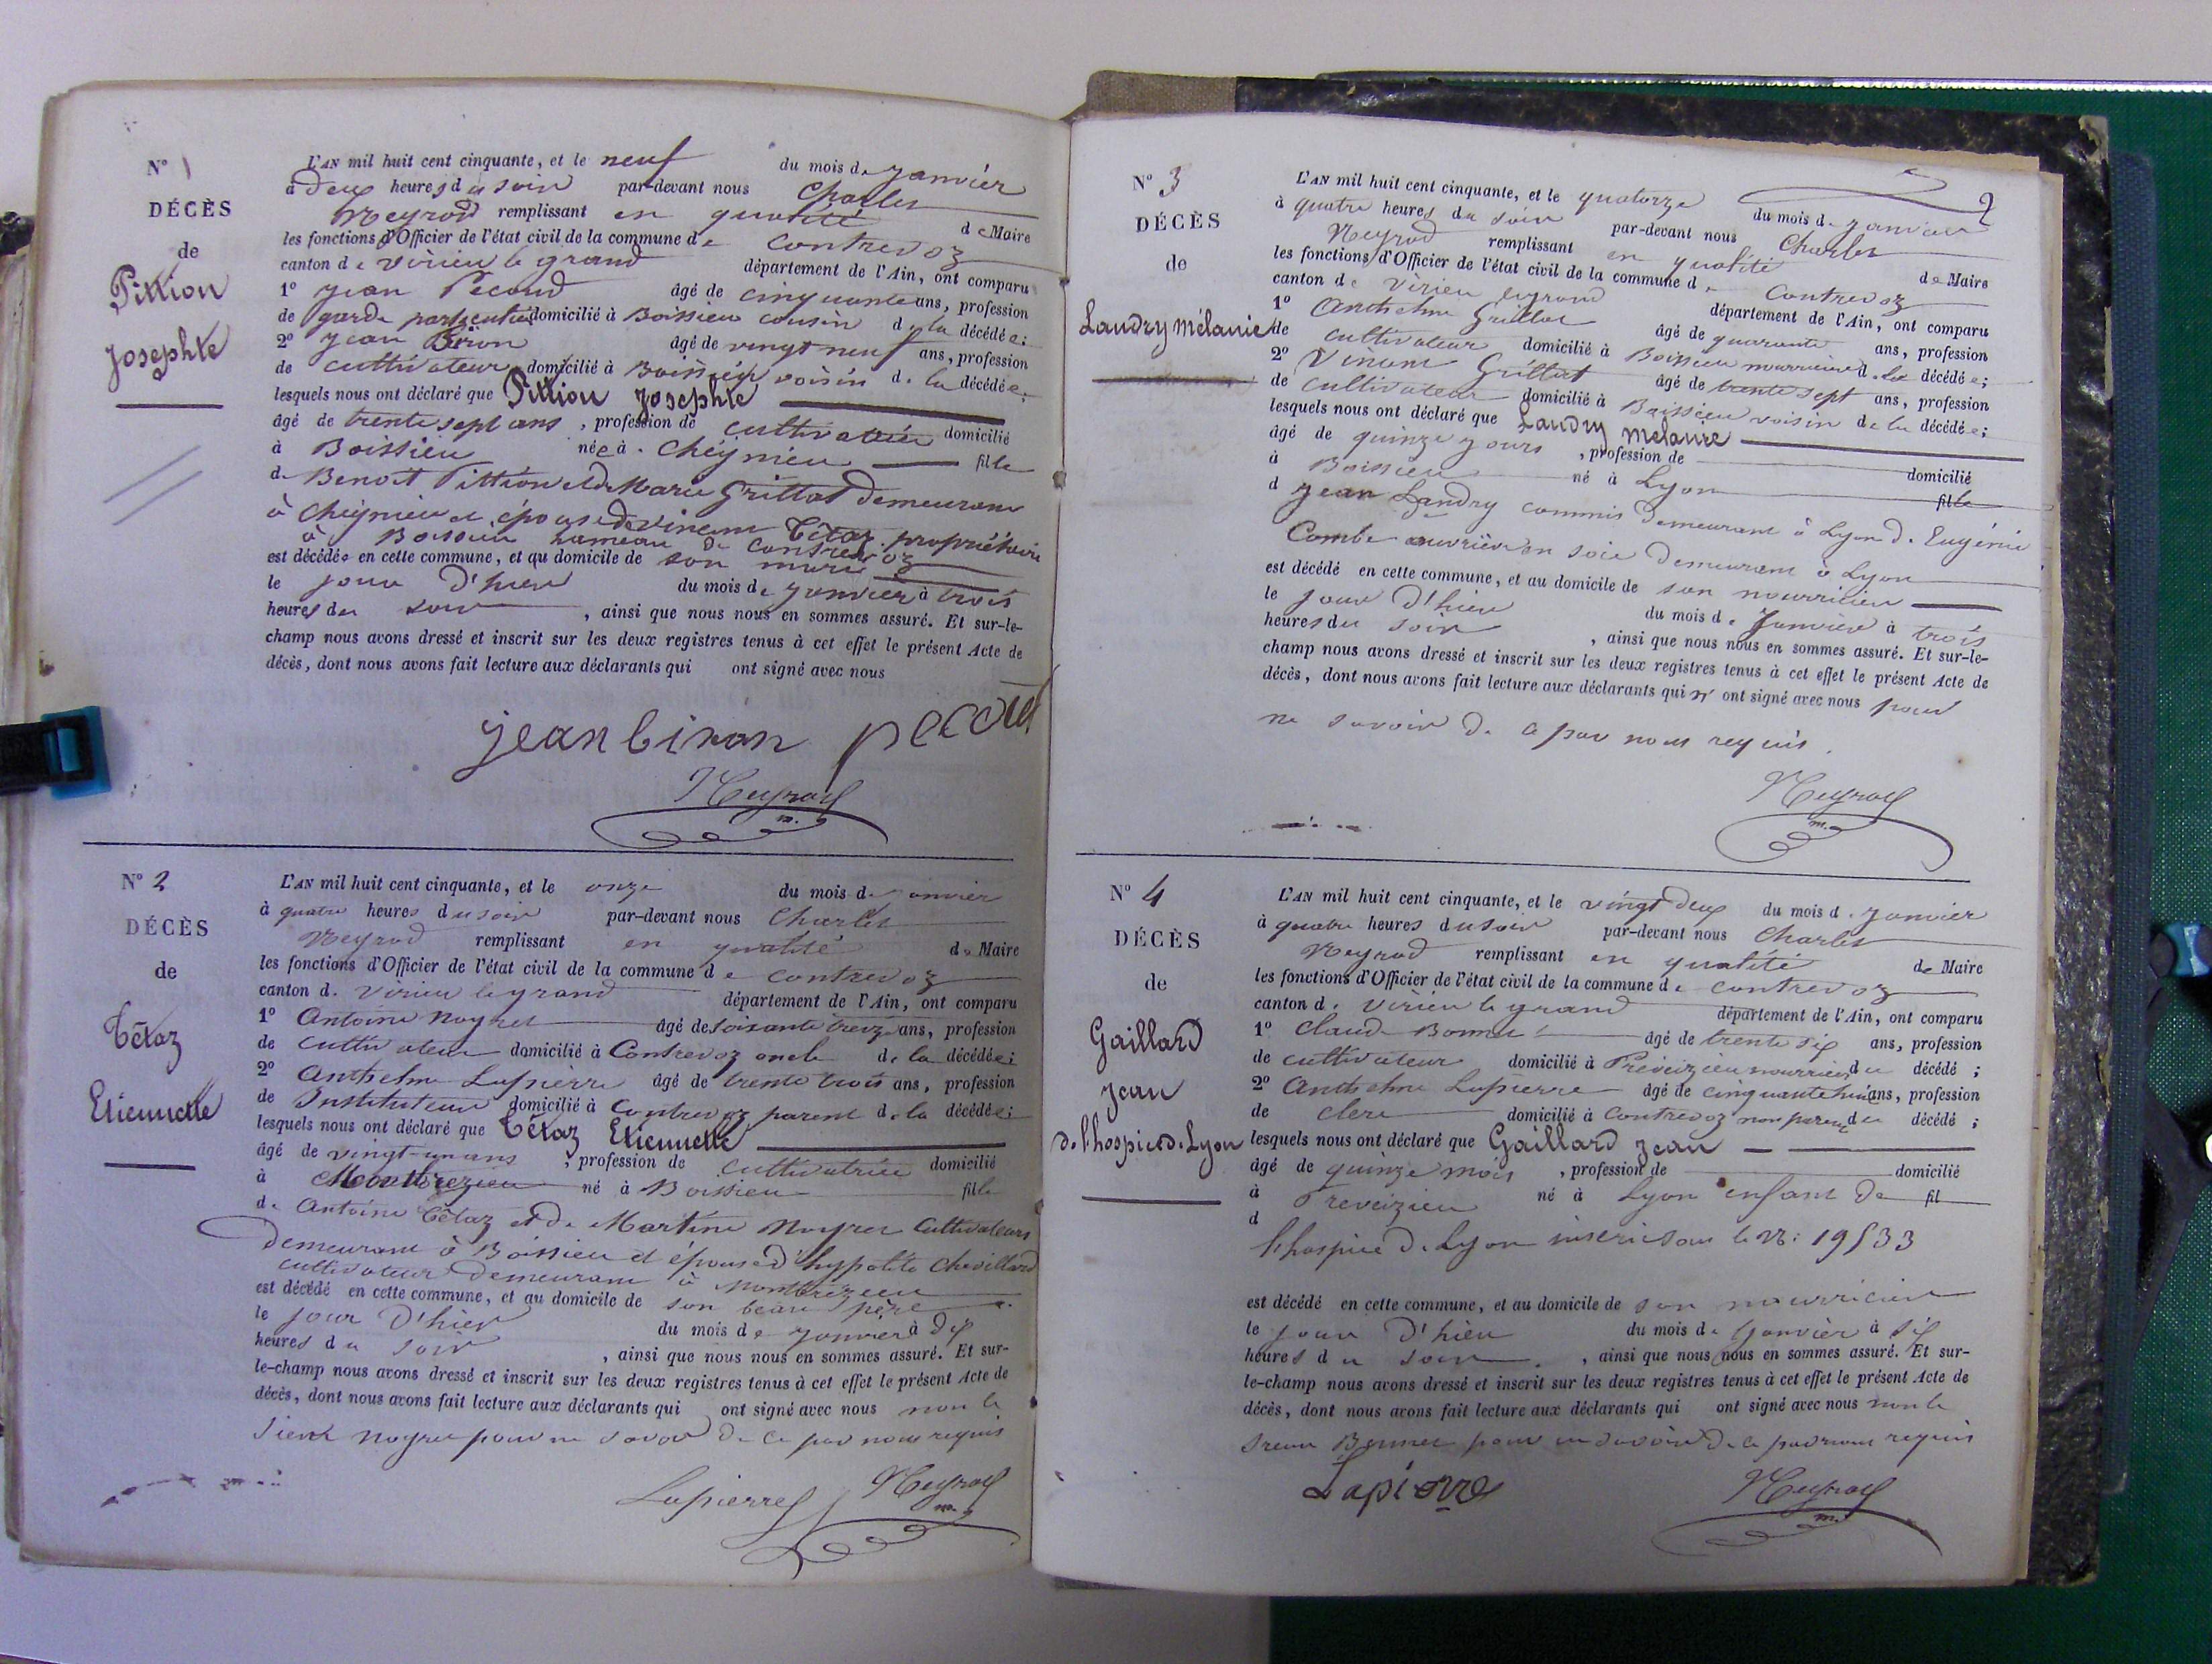 N° 1
DÉCÈS
de
Pittion
Josephte
L'AN mil huit cent cinquante, et le neuf du mois de janvier
à deux heures du soir par-devant nous Charles
Neyrod remplissant en qualité de Maire
les fonctions d'Officier de l'état civil de la commune de Contrevoz
canton de virieu le grand département de l'Ain, ont comparu
1° jean Pecoud âgé de cinquante ans, profession
de garde particulier domicilié à Boissieu cousin de la décédée;
2° jean Biron âgé de vingt neuf ans, profession
de cultivateur domicilié à Boissieu voisin de la décédée;
lesquels nous ont déclaré que Pittion Josephte
âgé de trente sept ans, profession de cultivatrice domicilié
à Boissieu née à Cheignieu fille
de Benoit Pittion et de Marie Grillot demeurant
à Cheignieu et épouse de vincent Têtaz propriétaire
à Boissieu hameau de Contrevoz
est décédée en cette commune, et au domicile de son mari
le jour d'hier du mois de janvier à trois
heures du soir, ainsi que nous nous en sommes assuré. Et sur-le-
champ nous avons dressé et inscrit sur les deux registres tenus à cet effet le présent Acte de
décès, dont nous avons fait lecture aux déclarants qui ont signé avec nous
jean biron pecoud
Neyrod
m.
N° 2
DÉCÈS
de
Têtaz
Etiennette
L'AN mil huit cent cinquante, et le onze du mois de janvier
à quatre heures du soir par-devant nous Charles
Neyrod remplissant en qualité de Maire
les fonctions d'Officier de l'état civil de la commune de Contrevoz
canton de virieu le grand département de l'Ain, ont comparu
1° Antoine Noyret âgé de soixante treize ans, profession
de cultivateur domicilié à Contrevoz oncle de la décédée;
2° Anthelme Lapierre âgé de trente trois ans, profession
de Instituteur domicilié à Contrevoz parent de la décédée;
lesquels nous ont déclaré que Têtaz Etiennette
âgé de vingt-un ans, profession de cultivatrice domicilié
à Montbrezieu né à Boissieu fille
de Antoine Têtaz et de Martine Noyret Cultivateurs
demeurant à Boissieu et épouse d'hypolite Chevillard
cultivateur demeurant à Montbrezieu
est décédé en cette commune, et au domicile de son beau père
le jour d'hier du mois de janvier à dix
heures du soir, ainsi que nous nous en sommes assuré. Et sur-
le-champ nous avons dressé et inscrit sur les deux registres tenus à cet effet le présent Acte de
décès, dont nous avons fait lecture aux déclarants qui ont signé avec nous non le
Sieur Noyret pour ne savoir de ce par nous requis
Lapierre Neyrod
m.
2
N° 3
DÉCÈS
de
Landry Mélanie
L'AN mil huit cent cinquante, et le quatorze du mois de janvier
à quatre heures du soir par-devant nous Charles
Neyrod remplissant en qualité de Maire
les fonctions d'Officier de l'état civil de la commune de Contrevoz
canton de virieu legrand département de l'Ain, ont comparu
1° Anthelme Grillot âgé de quarante ans, profession
de cultivateur domicilié à Boissieu nourricier de la décédée;
2° Vincent Grillot âgé de trente sept ans, profession
de cultivateur domicilié à Boissieu voisin de la décédée;
lesquels nous ont déclaré que Landry Melanie
âgé de quinze jours, profession de domicilié
à Boissieu né à Lyon fille
d jean Landry commis demeurant à Lyon d. Eugénie
Combe ouvrière en soie demeurant à Lyon
est décédé en cette commune, et au domicile de son nourricier
le jour d'hier du mois de Janvier à trois
heures du soir, ainsi que nous nous en sommes assuré. Et sur-le-
champ nous avons dressé et inscrit sur les deux registres tenus à cet effet le présent Acte de
décès, dont nous avons fait lecture aux déclarants qui n'ont signé avec nous pour
ne savoir de ce par nous requis.
Neyrod
m.
N° 4
DÉCÈS
de
Gaillard
Jean
de l'hospice de Lyon
L'AN mil huit cent cinquante, et le vingt deux du mois de janvier
à quatre heures du soir par-devant nous Charles
Neyrod remplissant en qualité de Maire
les fonctions d'Officier de l'état civil de la commune de Contrevoz
canton de virieu le grand département de l'Ain, ont comparu
1° Claude Bonnet âgé de trente six ans, profession
de cultivateur domicilié à Preveizieu nourricier du décédé;
2° Anthelme Lapierre âgé de cinquante huit ans, profession
de clerc domicilié à Contrevoz non parent du décédé;
lesquels nous ont déclaré que Gaillard Jean
âgé de quinze mois, profession de domicilié
à Preveizieu né à Lyon enfant de fil
d
l'hospice de Lyon inscrit sous le N: 19533
est décédé en cette commune, et au domicile de son nourricier
le jour d'hier du mois de Janvier à six
heures du soir, ainsi que nous nous en sommes assuré. Et sur-
le-champ nous avons dressé et inscrit sur les deux registres tenus à cet effet le présent Acte de
décès, dont nous avons fait lecture aux déclarants qui ont signé avec nous non le
Sieur Bonnet pour ne savoir de ce par nous requis
Lapierre Neyrod
m.